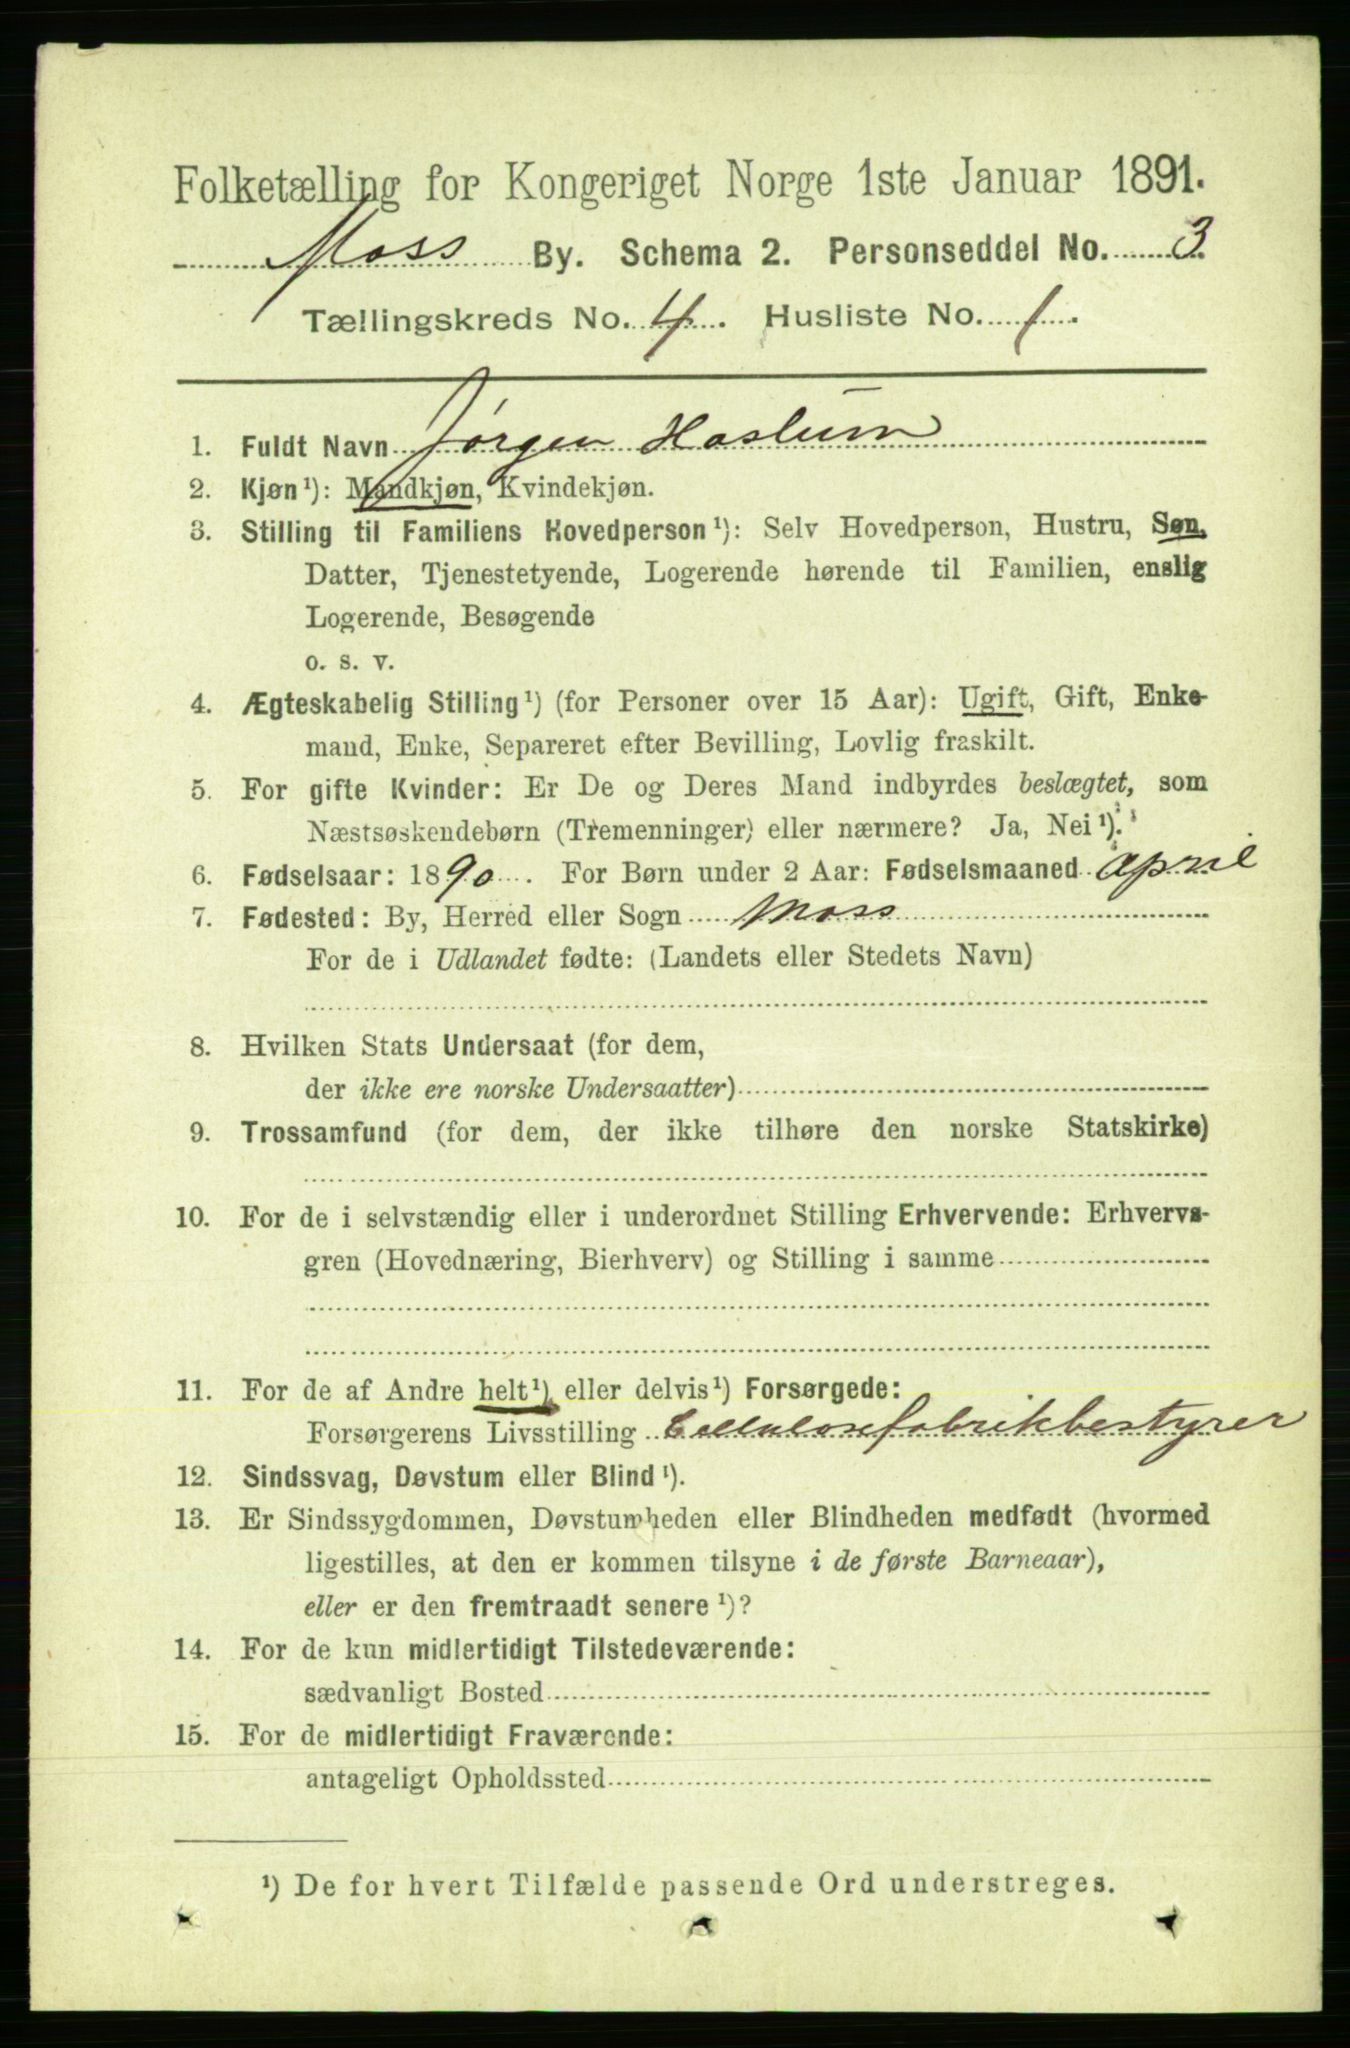 Folketælling for Kongeriget Norge 1ste Januar 1891.
Moss By. Schema 2. Personseddel No. 3.
Tællingskreds No. 4. Husliste No. 1.
1. Fuldt Navn Jørgen Haslum
2. Kjøn¹): Mandkjøn, Kvindekjøn.
3. Stilling til Familiens Hovedperson¹): Selv Hovedperson, Hustru, Søn,
Datter, Tjenestetyende, Logerende hørende til Familien, enslig
Logerende, Besøgende
o. s. v.
4. Ægteskabelig Stilling¹) (for Personer over 15 Aar): Ugift, Gift, Enke-
mand, Enke, Separeret efter Bevilling, Lovlig fraskilt.
5. For gifte Kvinder: Er De og Deres Mand indbyrdes beslægtet, som
Næstsøskendebørn (Tremenninger) eller nærmere? Ja, Nei¹).
6. Fødselsaar: 1890. For Børn under 2 Aar: Fødselsmaaned April
7. Fødested: By, Herred eller Sogn Moss
For de i Udlandet fødte: (Landets eller Stedets Navn)
8. Hvilken Stats Undersaat (for dem,
der ikke ere norske Undersaatter)
9. Trossamfund (for dem, der ikke tilhøre den norske Statskirke)
10. For de i selvstændig eller i underordnet Stilling Erhvervende: Erhvervs-
gren (Hovednæring, Bierhverv) og Stilling i samme
11. For de af Andre helt¹) eller delvis¹) Forsørgede:
Forsørgerens Livsstilling Cellulosefabrikbestyrer
12. Sindssvag, Døvstum eller Blind¹).
13. Er Sindssygdommen, Døvstumheden eller Blindheden medfødt (hvormed
ligestilles, at den er kommen tilsyne i de første Barneaar),
eller er den fremtraadt senere¹)?
14. For de kun midlertidigt Tilstedeværende:
sædvanligt Bosted
15. For de midlertidigt Fraværende:
antageligt Opholdssted
¹) De for hvert Tilfælde passende Ord understreges.